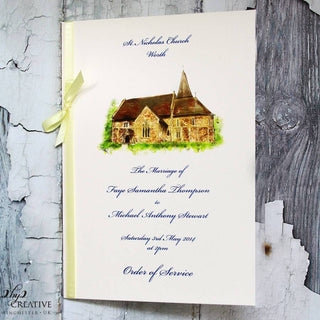 St. Nicholas Church
Worth
The Marriage of
Faye Samantha Thompson
to
Michael Anthony Stewart
Saturday 3rd May 2014
at 2pm
Order of Service
CREATIVE
WINCHESTER • UK